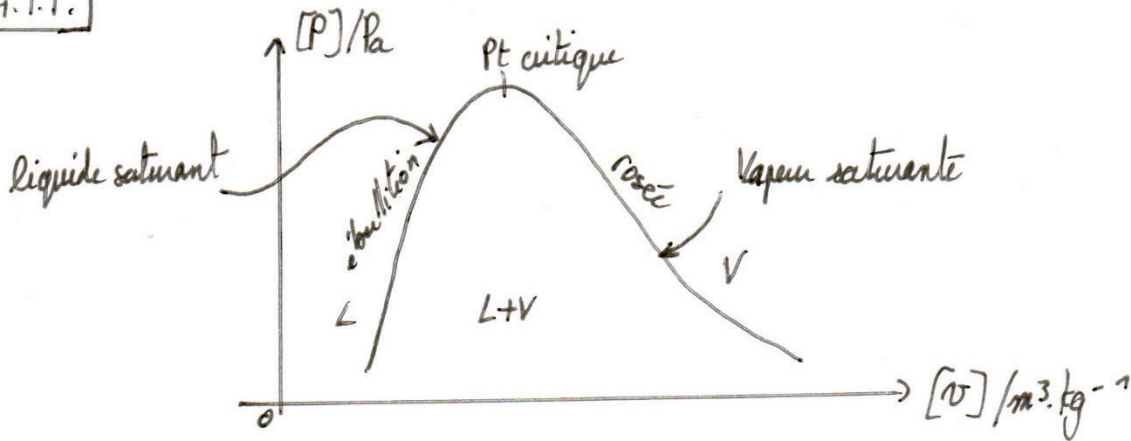 4.1.1.
[P]/Pa
Pt critique
liquide saturant
ébullition
rosée
Vapeur saturante
L
L+V
V
0
[v]/m³.kg⁻¹